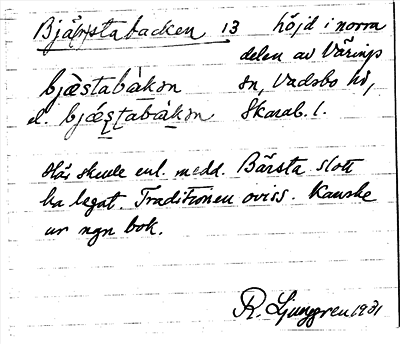 Bjä(r)stabacken 13 höjd i norra
delen av Värings
bjæ̀stabàkən sn, Vadsbo hd,
el. bjǽs̠t̠abàk̠ən Skarab. l.
Här skule enl. medd. Bärsta slott
ha legat. Traditionen oviss. Kanske
ur ngn bok.
R. Ljunggren 1931